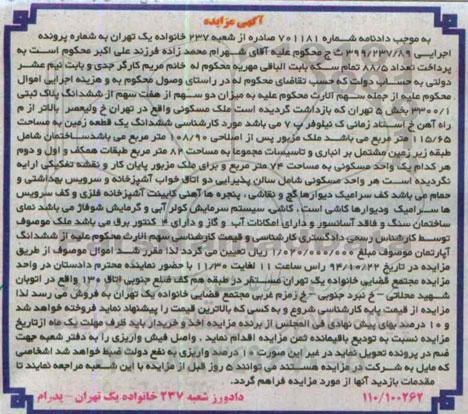 آگهی مزایده
به موجب دادنامه شماره ۷۰۱۱۸۱ صادره از شعبه ۲۳۷ خانواده یک تهران به شماره پرونده
اجرایی ۳۹۹/۲۳۷/۸۹ ج ح محکوم علیه آقای شهرام محمد زاده فرزند علی اکبر محکوم است به
پرداخت تعداد ۸۸/۵ تمام سکه بابت الباقی مهریه محکوم له خانم مریم کارگر جدی و بابت نیم عشر
دولتی به حساب دولت که حسب تقاضای محکوم له در راستای وصول محکوم به و هزینه اجرایی اموال
محکوم علیه از جمله سهم الارث محکوم علیه به میزان دو سهم از هفت سهم از ششدانگ پلاک ثبتی
۳۳۰۰/۱ بخش ۵ تهران که بازداشت گردیده است ملک مسکونی واقع در تهران خ ولیعصر بالاتر از م
راه آهن خ استاد زمانی ک نیلوفر پ ۷ می باشد مورد کارشناسی ششدانگ یک قطعه زمین به مساحت
۱۱۵/۶۵ متر مربع می باشد ملک مزبور پس از اصلاحی ۱۰۸/۹۰ متر مربع می باشد ساختمان شامل
طبقه زیر زمین مشتمل بر انباری و تاسیسات مجموعا به مساحت ۸۲ متر مربع طبقات همکف و اول و دوم
هر کدام یک واحد مسکونی به مساحت ۷۴ متر مربع و برای ملک مزبور پایان کار و نقشه تفکیکی ارایه
نگردیده است هر واحد مسکونی شامل سالن پذیرایی دو اتاق خواب آشپزخانه و سرویس بهداشتی و
حمام می باشد کف سرامیک دیوارها گچ و نقاشی ، پنجره ها آهنی کابینت آشپزخانه فلزی و کف سرویس
ها سرامیک ودیوارها کاشی است . کاشی، سیستم سرمایش کولر آبی و گرمایش شوفاژ می باشد نمای
ساختمان سنگ و فاقد آسانسور و دارای امکانات آب و گاز و دارای ۴ کنتور برق می باشد ملک موصوف
توسط کارشناس رسمی دادگستری کارشناسی و قیمت کارشناسی سهم الارث محکوم علیه از ششدانگ
آپارتمان موصوف مبلغ ۱/۰۲۰/۰۰۰/۰۰۰ ریال تعیین می گردد لذا مقرر شد اموال موصوف از طریق
مزایده در تاریخ ۹۴/۱۰/۲۲ راس ساعت ۱۱ لغایت ۱۱/۳۰ با حضور نماینده محترم دادستان در واحد
مزایده مجتمع قضایی خانواده یک تهران مستقر در طبقه هم کف ضلع جنوبی اتاق ۱۳۰ واقع در اتوبان
شهید محلاتی – خ نبرد جنوبی – خ زمزم غربی مجتمع قضایی خانواده یک تهران به فروش می رسد لذا
مزایده از قیمت پایه کارشناسی شروع و به کسی که بالاترین قیمت را پیشنهاد نماید فروخته خواهد شد
و ۱۰ درصد بهای پیش نهادی فی المجلس از برنده مزایده اخذ و خریدار باید ظرف مهلت یک ماه ازتاریخ
مزایده نسبت به تودیع باقیمانده ثمن مزایده اقدام نماید . واصل فیش واریزی را به دفتر شعبه جهت
ضم در پرونده تحویل نماید در غیر این صورت ۱۰ درصد واریزی به نفع دولت ضبط خواهد شد اشخاصی
که مایل به شرکت در مزایده هستند می توانند ۵ روز قبل از مزایده با این شعبه مراجعه نمایند تا
مقدمات بازدید آنها از مورد مزایده فراهم گردد.
۱۱۰/۱۰۰۲۶۲ دادورز شعبه ۲۳۷ خانواده یک تهران – پدرام